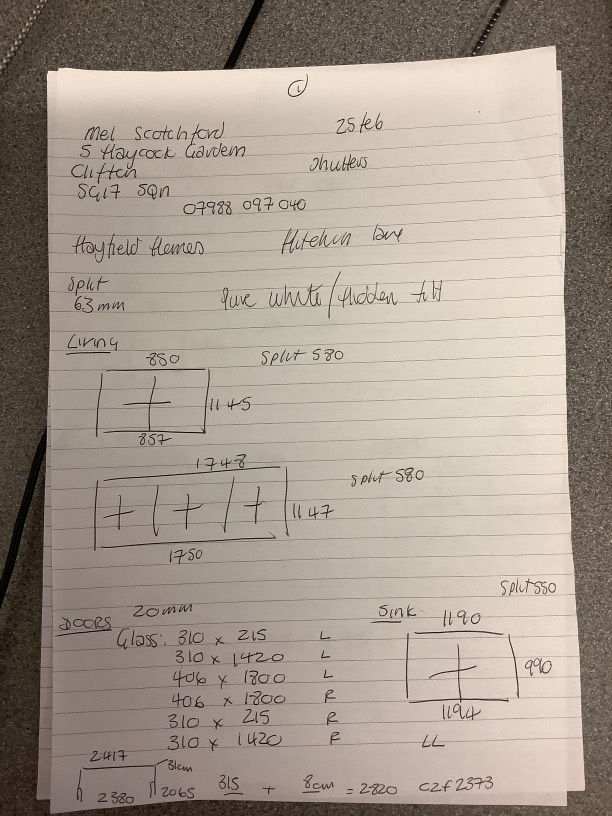 1
Mel Scotchford 25 feb
5 Haycock Gardem
Clifton Shutters
SG17 5Qn
07988 097 040
Hayfield Homes Hitchin lane
Split
63mm Pure white/hidden tilt
Living
850 Split 580
1145
857
1748
Split 580
1147
1750
Split 550
DOORS 20mm Sink 1190
Glass: 310 x 215 L
310 x 1420 L
406 x 1800 L 990
406 x 1800 R
310 x 215 R 1194
310 x 1420 R LL
2417 31cm
2380 2065 315 + 8cm = 2820 C2f 2373